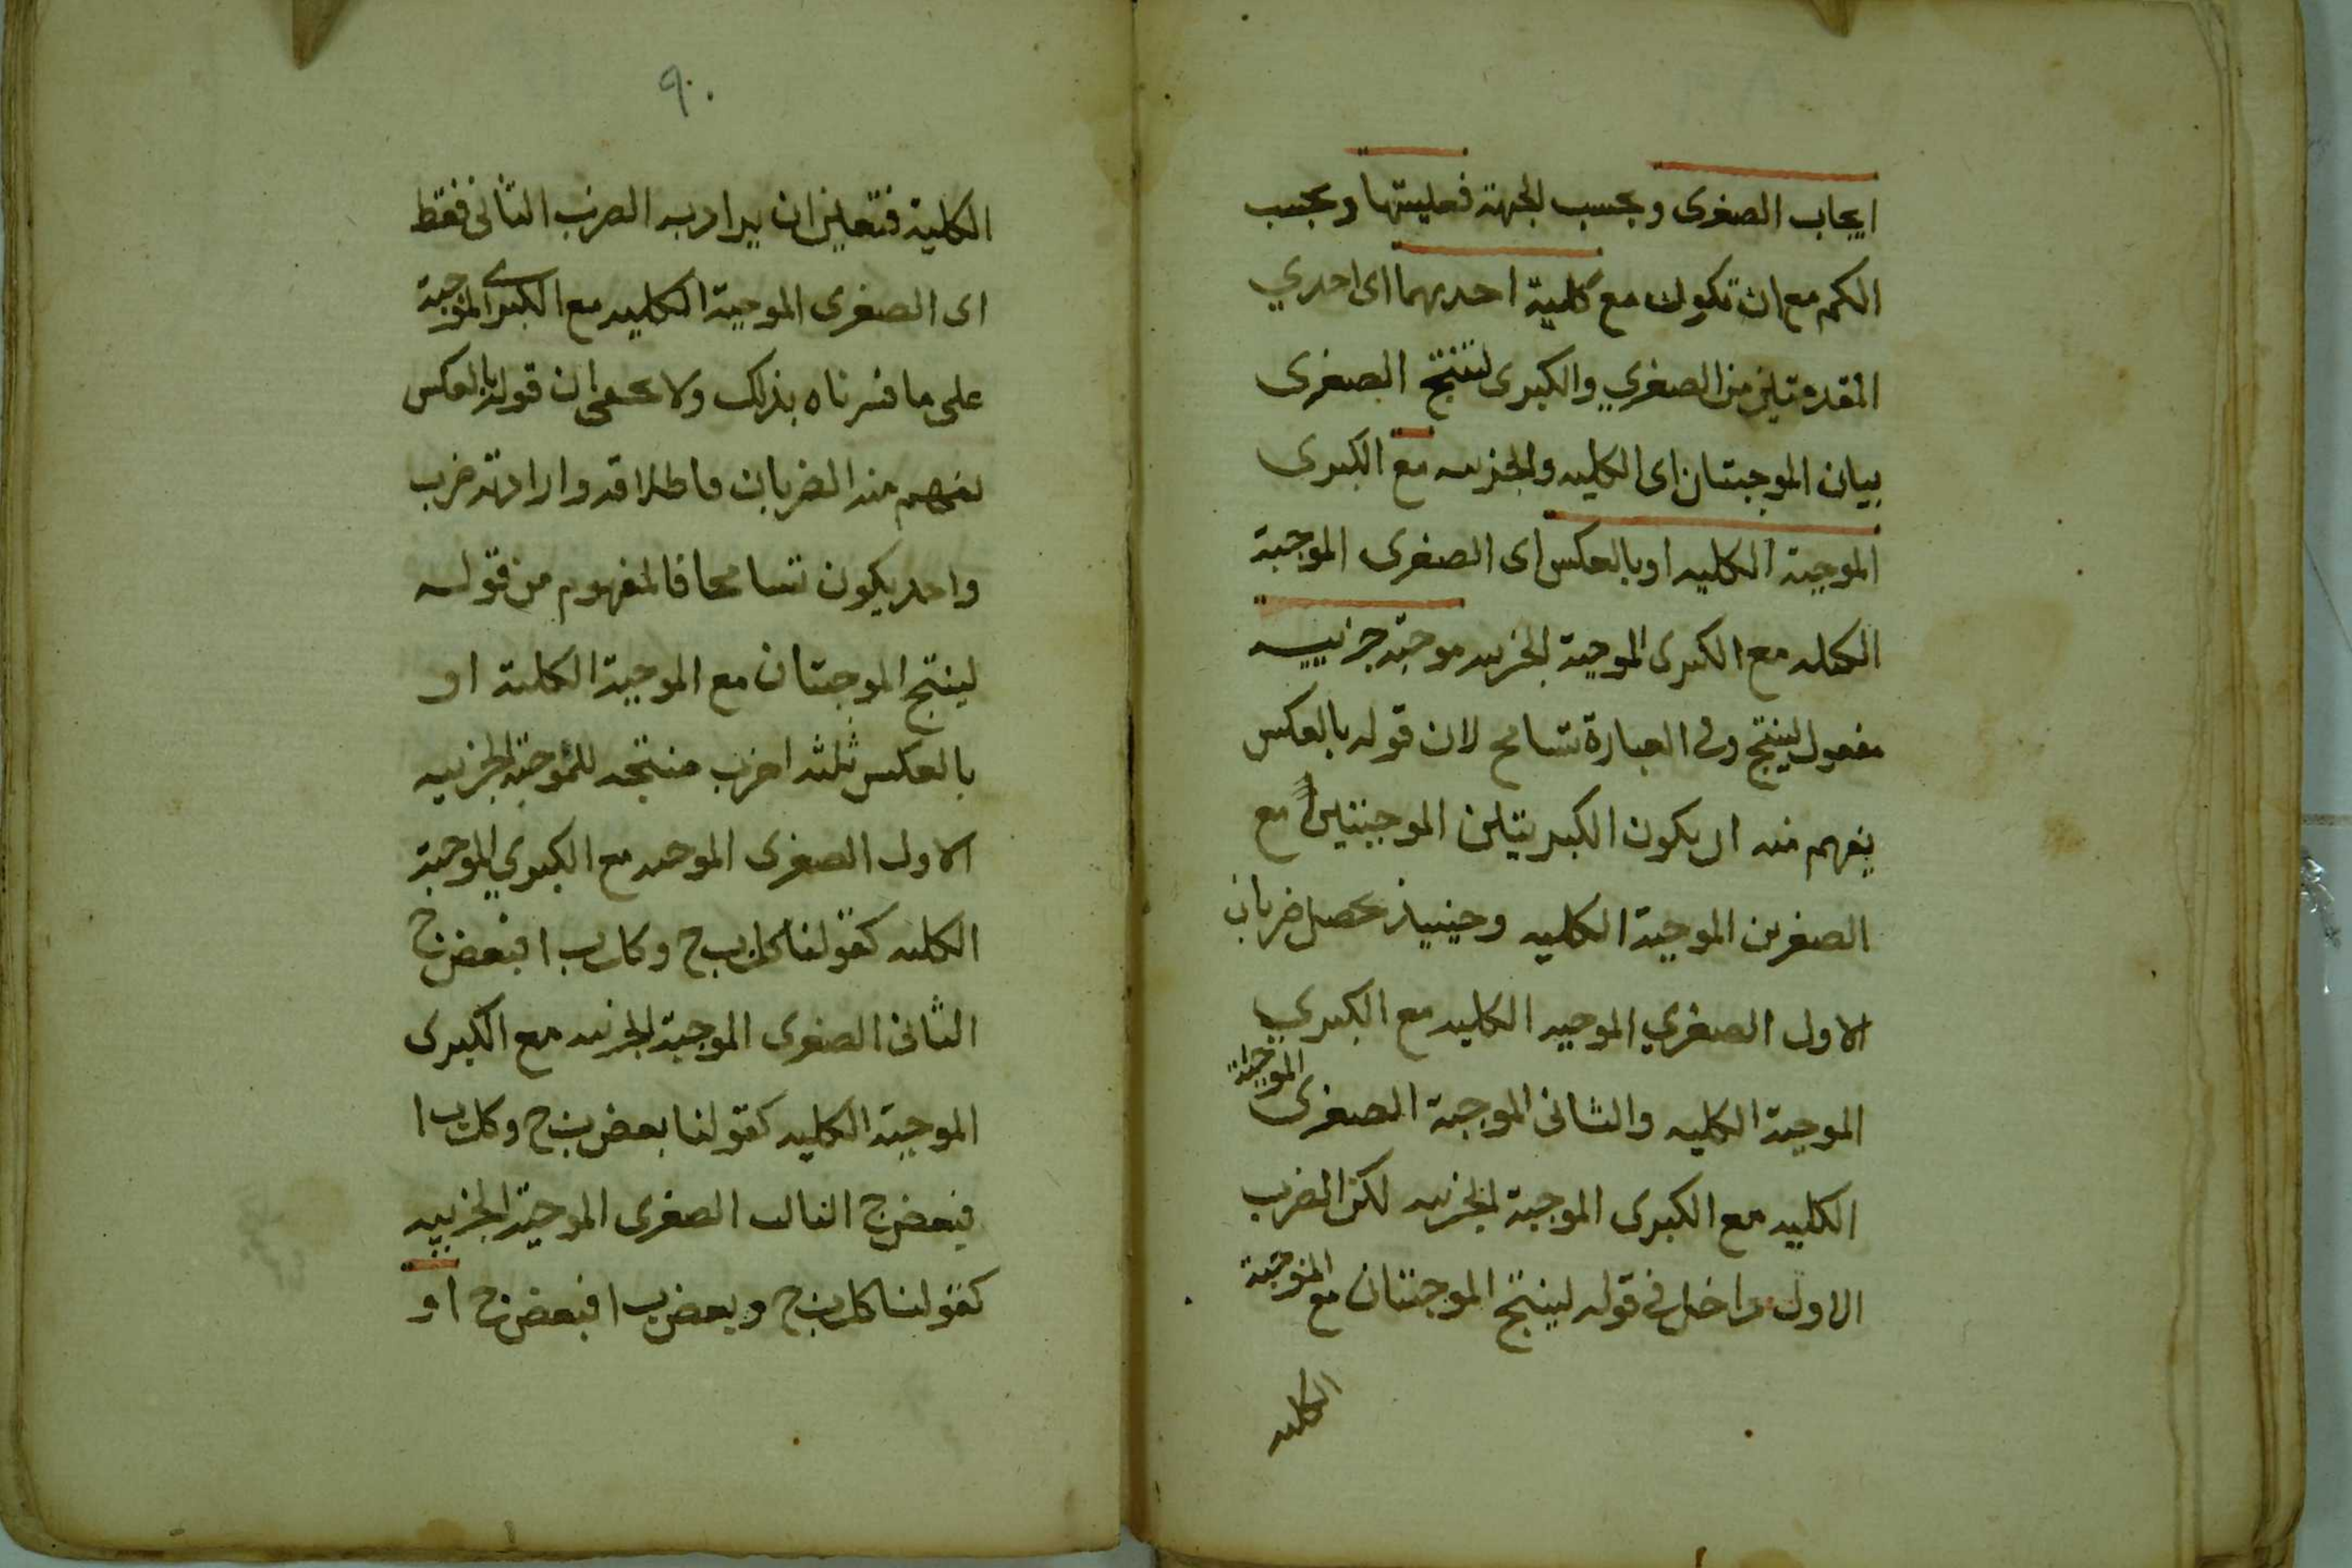 ايجاب الصغرى وبحسب الجهة فعليتها وبحسب
الكم مع ان تكون مع كلية احديهما اى احدي
المقدمتين من الصغري والكبرى لتنتج الصغرى
بيان الموجبتان اى الكليه والجزييه مع الكبرى
الموجبة الكليه او بالعكس اى الصغرى الموجبة
الكليه مع الكبرى الموجبة الجزييه موجبة جزييه
مفعول لينتج وفي العبارة تسامح لان قوله بالعكس
يفهم منه ان يكون الكبريتين الموجبتين مع
الصغرين الموجبة الكليه وحينيذ يحصل ضربان
الاول الصغري الموجبه الكليه مع الكبري
الموجبة الكليه والثانى الموجبة الصغرى الموجبة
الكليه مع الكبرى الموجبة الجزييه لكن الضرب
الاول داخل في قوله لينتج الموجبتان مع الموجبة
الكليه
٩٠
الكلية فتعين ان يراد به الضرب الثانى فقط
اى الصغرى الموجبة الكليه مع الكبرى الموجبة
على ما فسرناه بذلك ولا يخفى ان قوله بالعكس
يفهم منه الضربان فاطلاقه وارادته ضرب
واحد يكون تسامحا فالمفهوم من قوله
لينتج الموجبتان مع الموجبة الكلية او
بالعكس ثلثه اضرب منتجه للموجبة الجزييه
الاول الصغرى الموجبه مع الكبري الموجبة
الكليه كقولنا كل ب ج وكل ب ا فبعض ج
الثانى الصغرى الموجبة الجزييه مع الكبرى
الموجبة الكليه كقولنا بعض ب ج وكل ب ا
فبعض ج الثالث الصغرى الموجبة الجزييه
كقولنا كل ب ج وبعض ب ا فبعض ج او